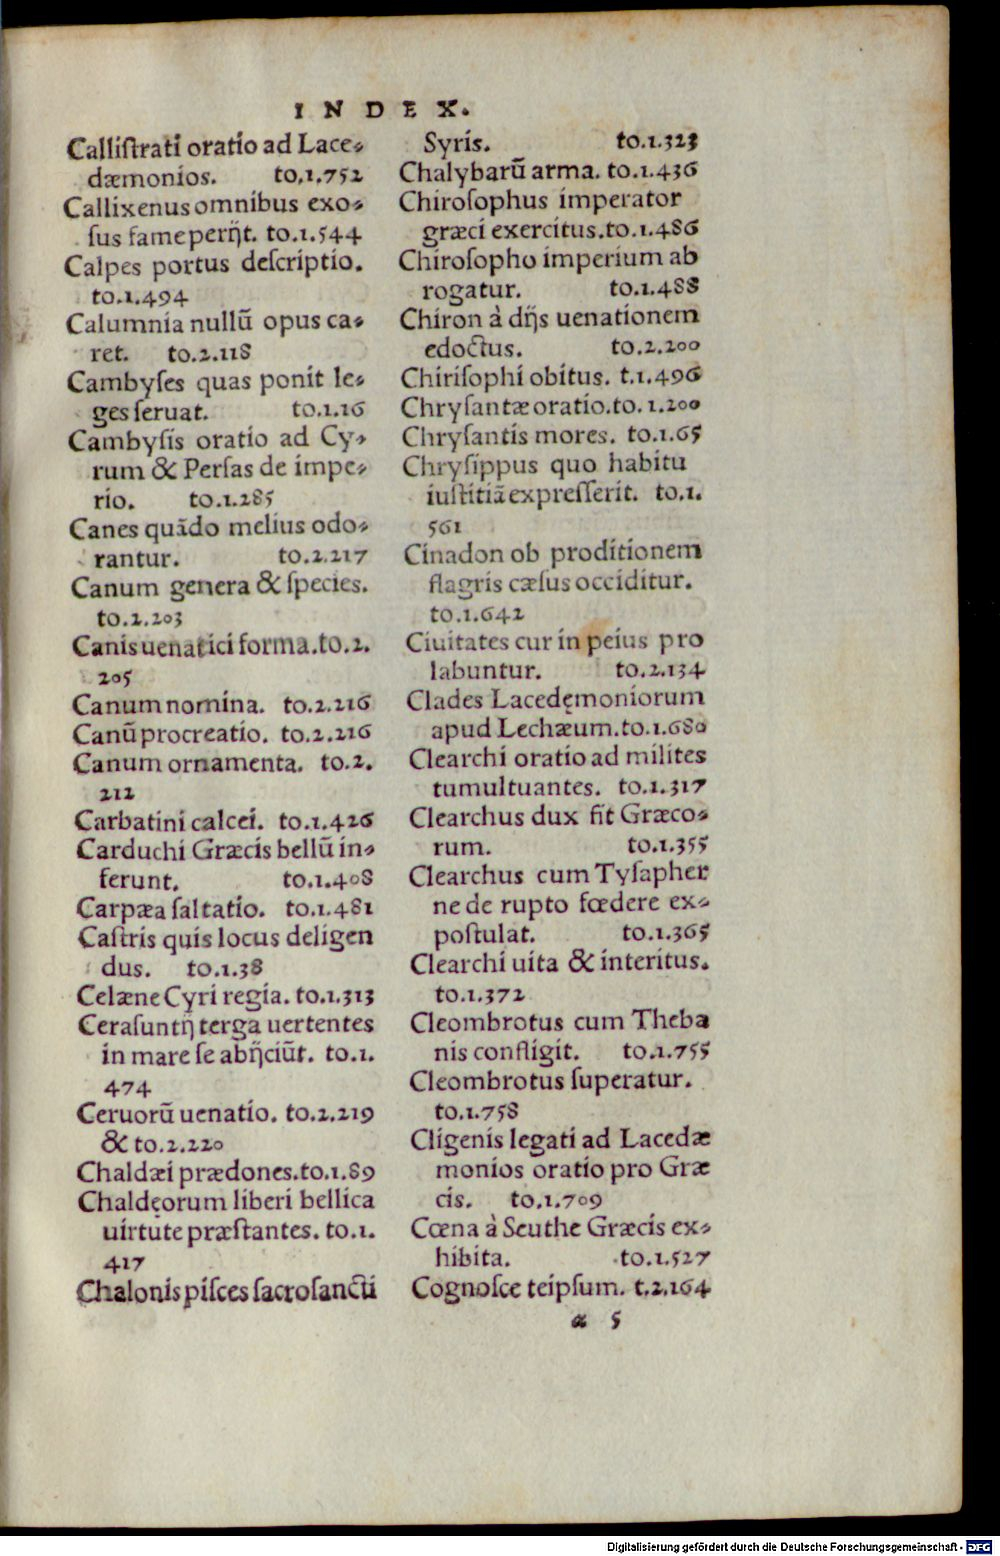 INDEX.
Calliſtrati oratio ad Lace-
dæmonios. to.1.752
Callixenus omnibus exo-
ſus fame perijt. to.1.544
Calpes portus deſcriptio.
to.1.494
Calumnia nullū opus ca-
ret. to.2.118
Cambyſes quas ponit le-
ges ſeruat. to.1.16
Cambyſis oratio ad Cy-
rum & Perſas de impe-
rio. to.1.285
Canes quādo melius odo-
rantur. to.2.217
Canum genera & ſpecies.
to.2.203
Canis uenatici forma. to.2.
205
Canum nomina. to.2.216
Canū procreatio. to.2.216
Canum ornamenta. to.2.
212
Carbatini calcei. to.1.426
Carduchi Græcis bellū in-
ferunt. to.1.408
Carpæa ſaltatio. to.1.481
Caſtris quis locus deligen
dus. to.1.38
Celæne Cyri regia. to.1.313
Ceraſuntij terga uertentes
in mare ſe abijciūt. to.1.
474
Ceruorū uenatio. to.2.219
& to.2.220
Chaldæi prædones. to.1.89
Chaldęorum liberi bellica
uirtute præſtantes. to.1.
417
Chalonis piſces ſacroſancti
Syris. to.1.323
Chalybarū arma. to.1.436
Chiroſophus imperator
græci exercitus. to.1.486
Chiroſopho imperium ab
rogatur. to.1.488
Chiron à dijs uenationem
edoctus. to.2.200
Chiriſophi obitus. t.1.496
Chryſantæ oratio. to.1.200
Chryſantis mores. to.1.65
Chryſippus quo habitu
iuſtitiā expreſſerit. to.1.
561
Cinadon ob proditionem
flagris cæſus occiditur.
to.1.642
Ciuitates cur in peius pro
labuntur. to.2.134
Clades Lacedęmoniorum
apud Lechæum. to.1.680
Clearchi oratio ad milites
tumultuantes. to.1.317
Clearchus dux fit Græco-
rum. to.1.355
Clearchus cum Tyſapher
ne de rupto fœdere ex-
poſtulat. to.1.365
Clearchi uita & interitus.
to.1.372
Cleombrotus cum Theba
nis confligit. to.1.755
Cleombrotus ſuperatur.
to.1.758
Cligenis legati ad Lacedæ
monios oratio pro Græ
cis. to.1.709
Cœna à Seuthe Græcis ex-
hibita. to.1.527
Cognoſce teipſum. t.2.164
α 5
Digitalisierung gefördert durch die Deutsche Forschungsgemeinschaft - DFG